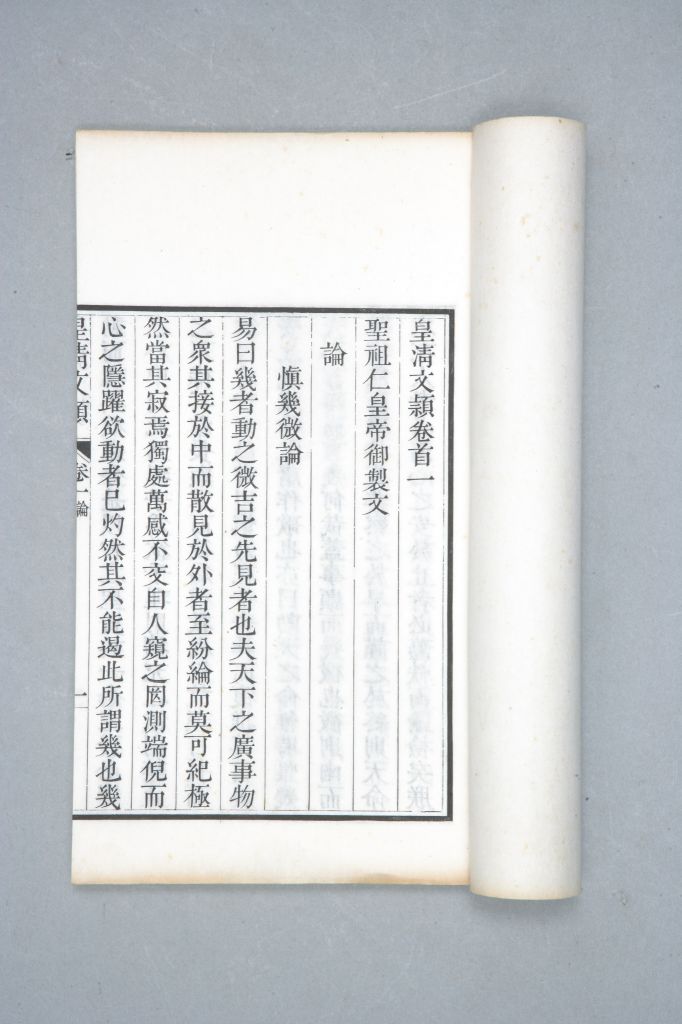 皇清文穎卷首一
聖祖仁皇帝御製文
論
慎幾微論
易曰幾者動之微吉之先見者也夫天下之廣事物
之衆其接於中而散見於外者至紛綸而莫可紀極
然當其寂焉獨處萬感不交自人窺之罔測端倪而
心之隱躍欲動者已灼然其不能遏此所謂幾也幾
皇清文穎
卷一
論
一